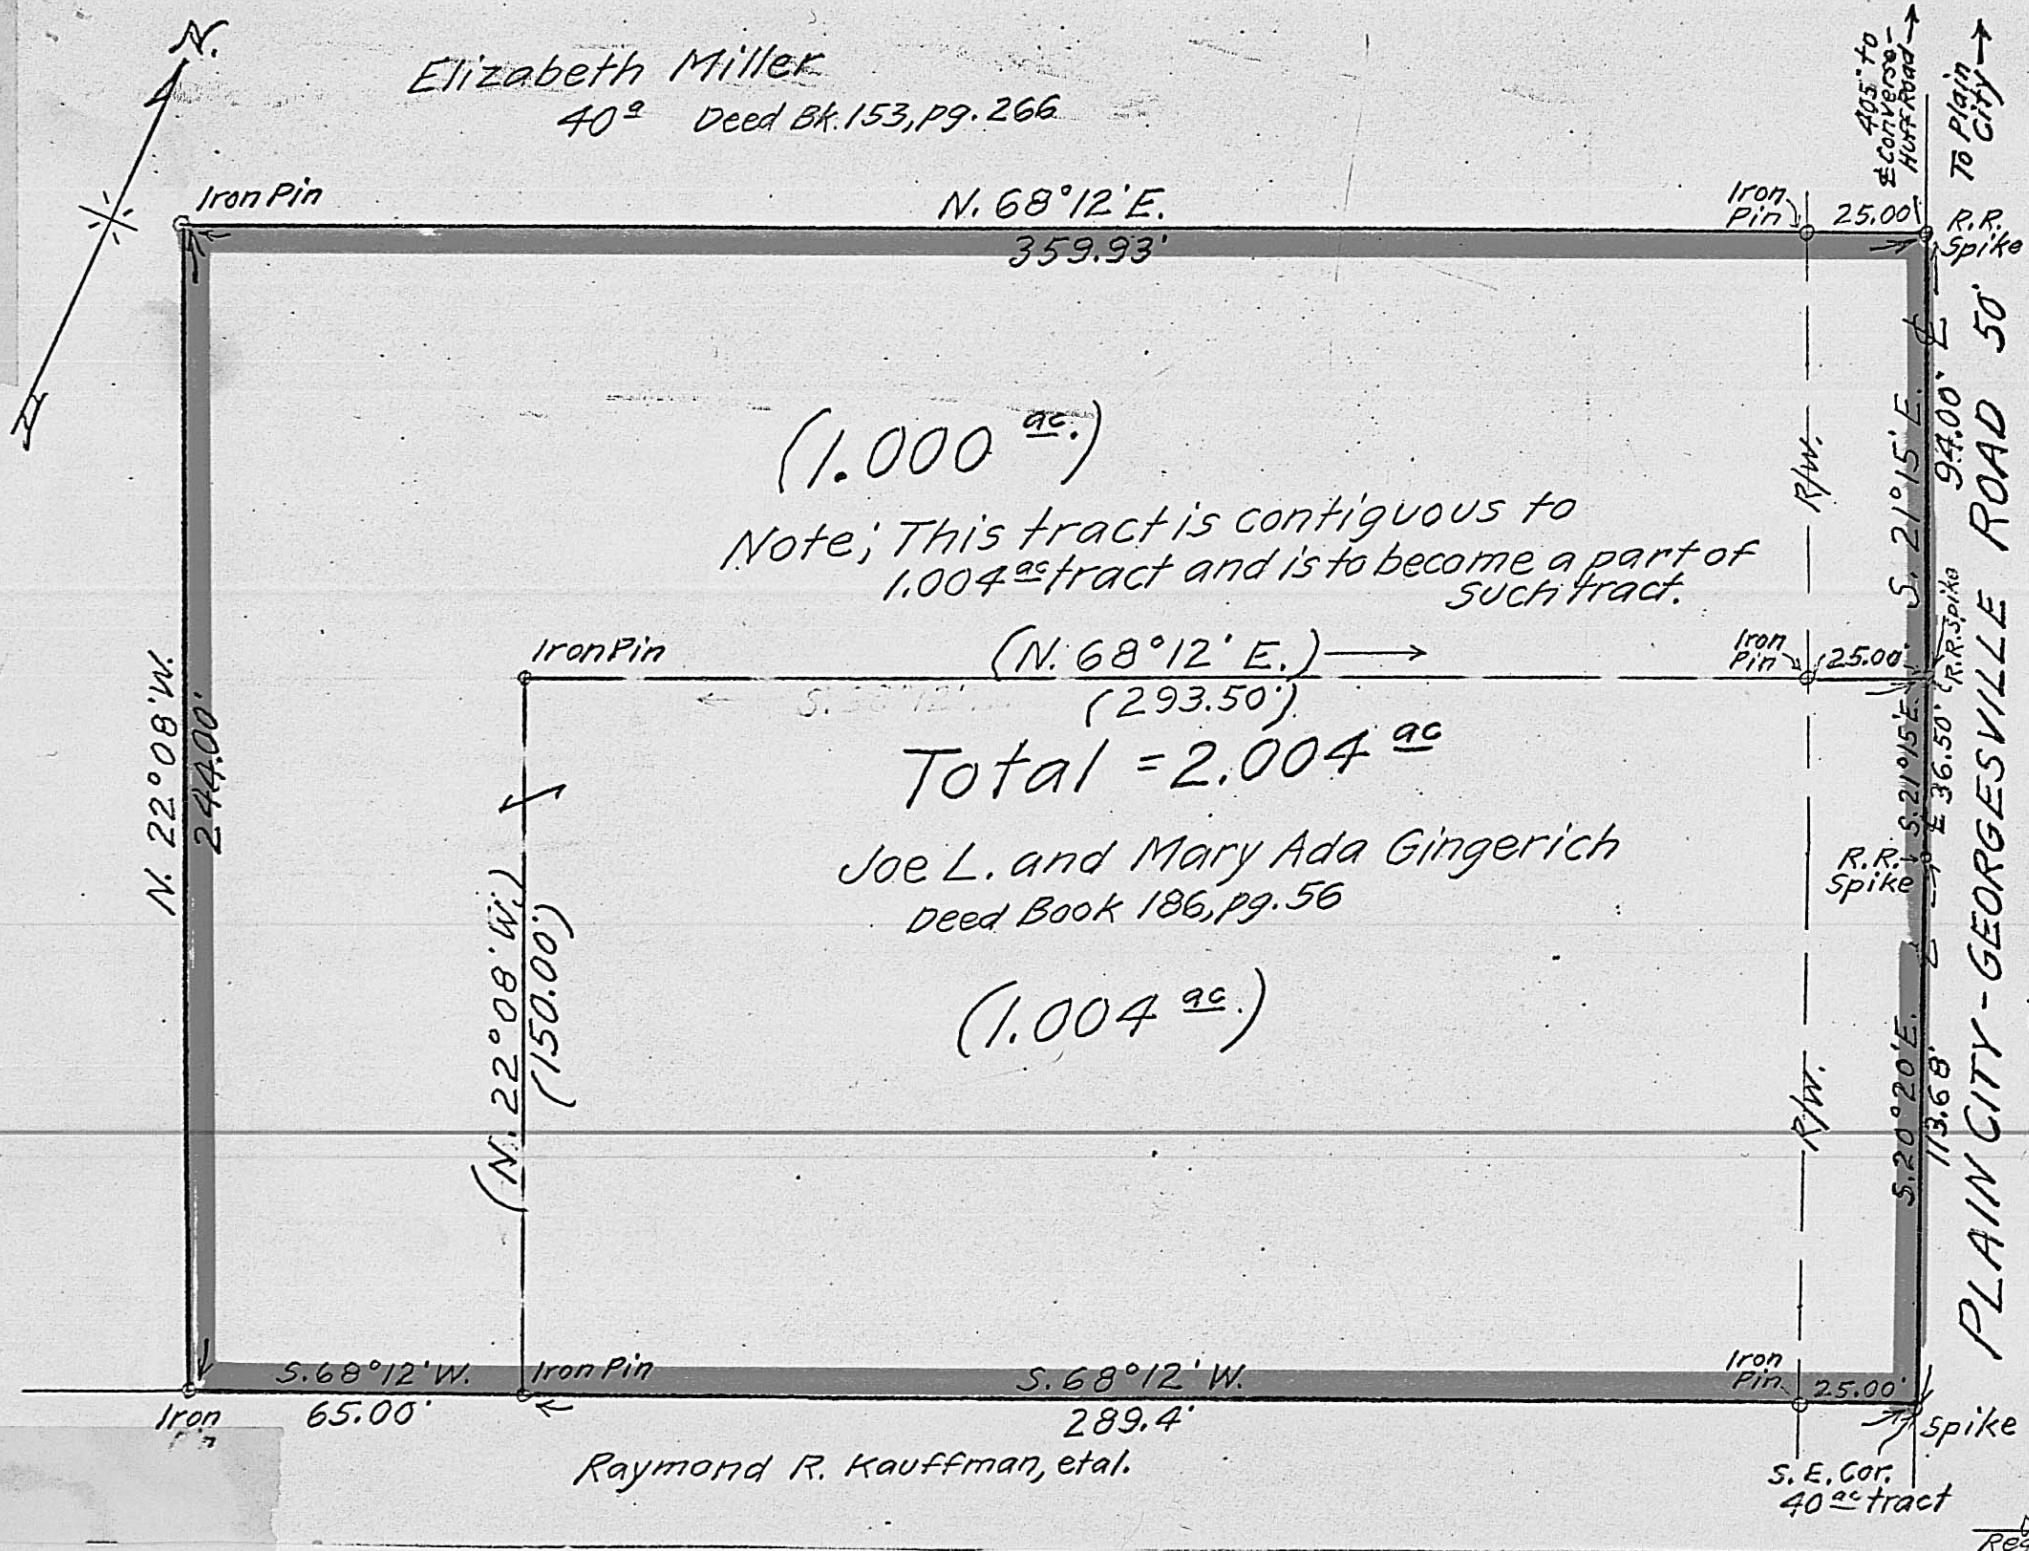 N.
Elizabeth Miller
40ª Deed Bk. 153, pg. 266
405' to
℄ Converse-
Huff Road →
To Plain
City →
Iron Pin
N. 68°12' E.
359.93'
Iron
Pin
25.00'
R.R.
Spike
(1.000 ac.)
Note; This tract is contiguous to
1.004 ac tract and is to become a part of
such tract.
R/W.
S. 21°15' E.
94.00'
PLAIN CITY - GEORGESVILLE ROAD 50'
Iron Pin
(N. 68°12' E.) →
(293.50')
Iron
Pin
25.00'
R.R. Spike
N. 22°08' W.
244.00'
Total = 2.004 ac
S. 21°15' E.
℄ 36.50'
Joe L. and Mary Ada Gingerich
Deed Book 186, pg. 56
R.R.
Spike
(N. 22°08' W.)
(150.00')
(1.004 ac.)
R/W.
S. 20°20' E.
113.68'
S. 68°12' W.
65.00'
Iron Pin
S. 68°12' W.
289.4'
Iron
Pin
25.00'
Iron
Spike
Raymond R. Kauffman, etal.
S. E. Cor.
40 ac tract